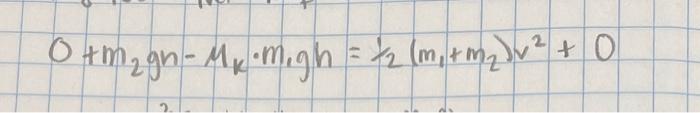 0 + m₂gh - μₖ·m₁gh = ½ (m₁+m₂)v² + 0